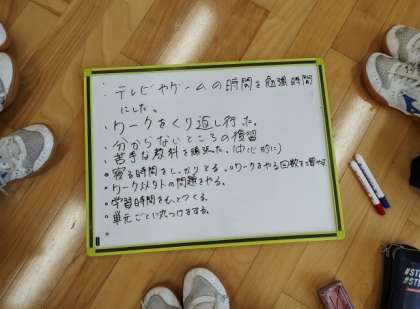 ・テレビやゲームの時間を勉強時間
にした。
・ワークをくり返し行った。
・分からないところの復習
・苦手な教科を頑張った。(中心的に)
・寝る時間をしっかりとる。・ワークをやる回数を増やす
・ワーク以外の問題をやる。
・学習時間をもっとつくる。
・単元ごとに丸つけをする。
#ST
#STE